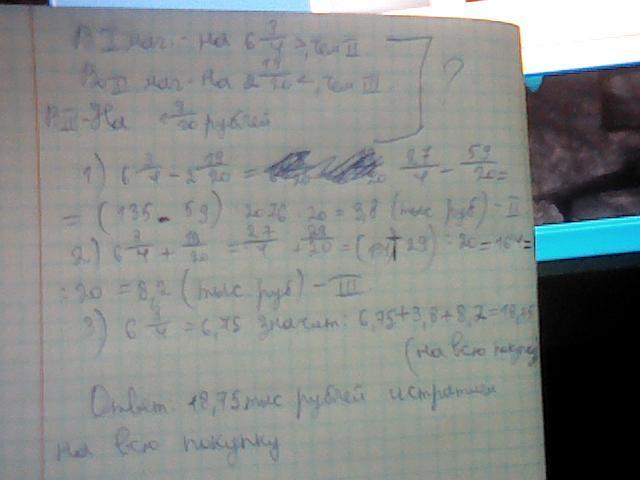 В I маг. - на 6 3/4 >, чем II
Во II маг - На 2 19/20 <, чем III
В III - На 1 9/20 рублей
?
1) 6 3/4 - 2 19/20 = 27/4 - 59/20 =
= (135 - 59) : 20 = 76 : 20 = 3,8 (тыс руб) - II
2) 6 3/4 + 1 9/20 = 27/4 + 29/20 = 29) : 20 = 164 =
: 20 = 8,2 (тыс руб) - III
3) 6 3/4 = 6,75 значит: 6,75 + 3,8 + 8,2 = 18,75
(на всю покупку)
Ответ: 18,75 тыс рублей истратили
на всю покупку